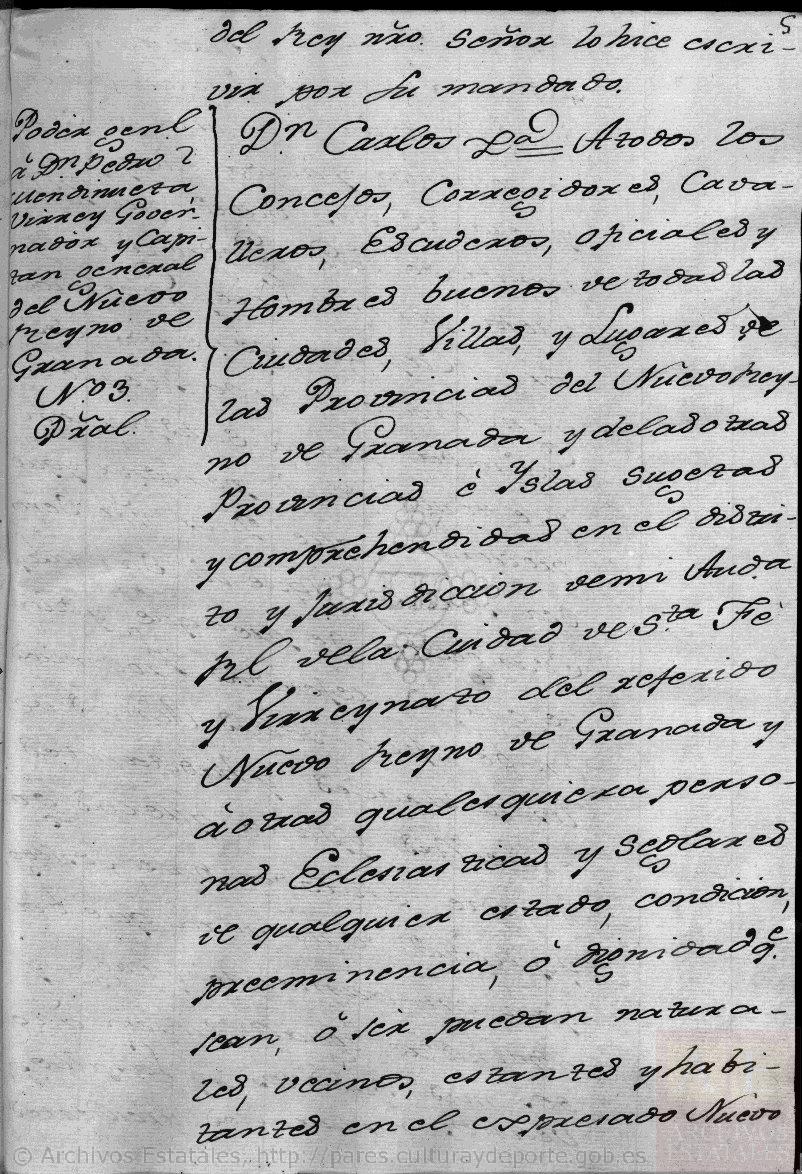 5
del Rey nřo. Señor lo hice escri-
vir por su mandado.
Poder genl
á Dn. Pedro
Mendinueta,
Virrey Gover-
nador y Capi-
tan general
del Nuevo
Reyno de
Granada.
N.º 3.
Přal.
Dn Carlos &a Atodos los
Concejos, Corregidores, Cava-
lleros, Escuderos, oficiales y
Hombres buenos de todas las
Ciudades, Villas, y Lugares de
las Provincias del Nuevo Rey-
no de Granada y delas otras
Provincias é Yslas sugetas
y comprehendidas en el distri-
to y Jurisdiccion demi Auda
Rl dela Ciudad de Sta. Fé
y Virreynato del referido
Nuevo Reyno de Granada y
á otras qualesquiera perso-
nas Eclesiasticas y Seglares
de qualquier estado, condicion,
preeminencia, ó dignidad q.e
sean, ó ser puedan natura-
les, vecinos, estantes y habi-
tantes en el expresado Nuevo
© Archivos Estatales, http://pares.culturaydeporte.gob.es